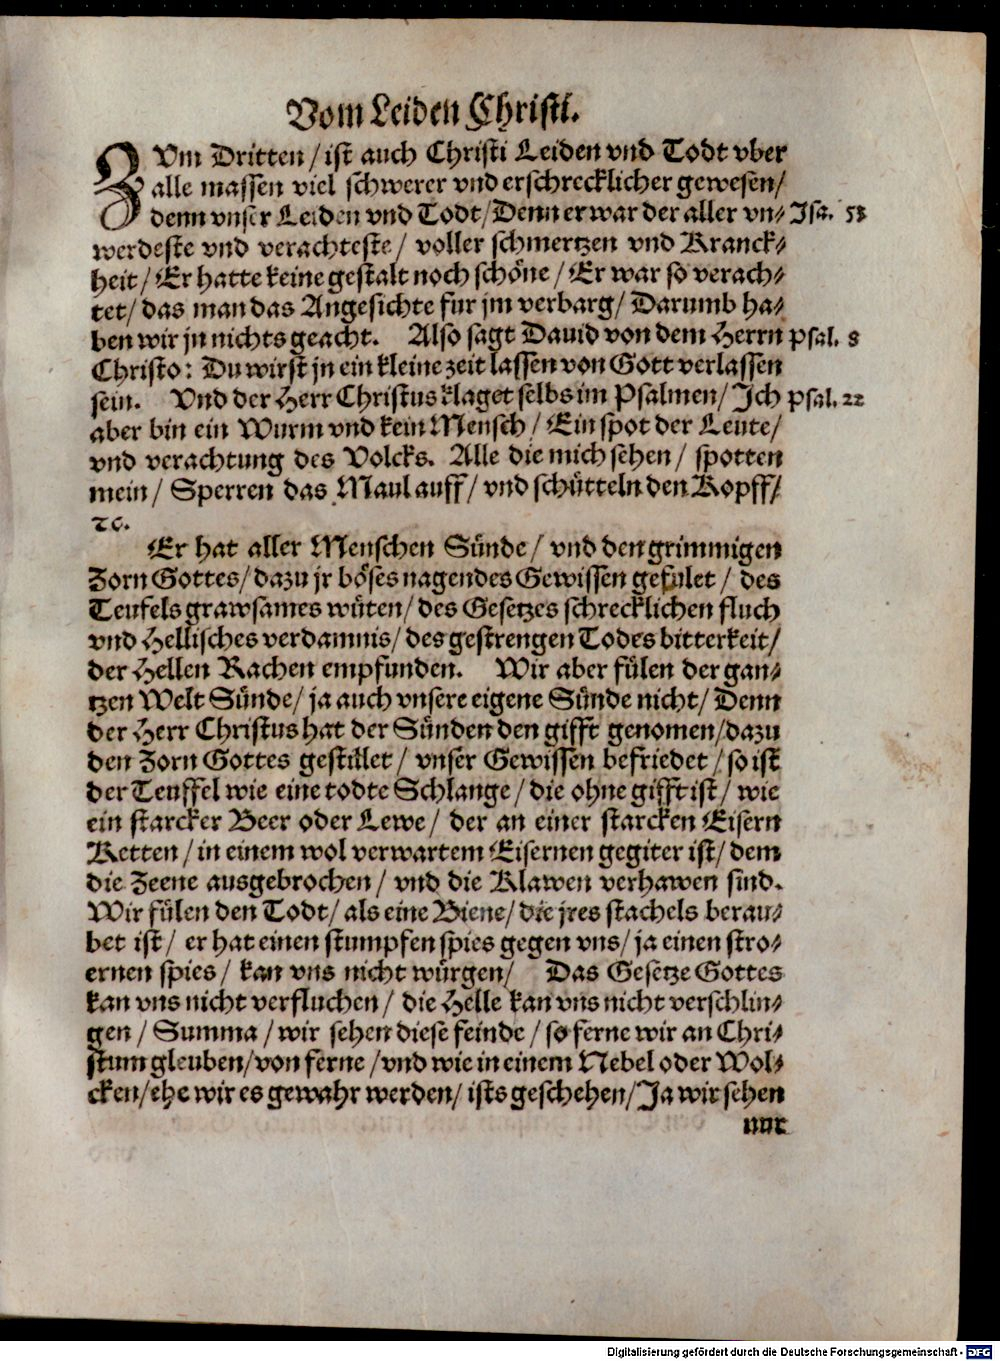 Vom Leiden Christi.
ZVm Dritten / ist auch Christi Leiden vnd Todt vber
alle massen viel schwerer vnd erschrecklicher gewesen /
denn vnser Leiden vnd Todt / Denn er war der aller vn= Isa. 53
werdeste vnd verachteste / voller schmertzen vnd Kranck=
heit / Er hatte keine gestalt noch schöne / Er war so verach=
tet / das man das Angesichte fur jm verbarg / Darumb ha=
ben wir jn nichts geacht. Also sagt Dauid von dem Herrn Psal. 8
Christo: Du wirst jn ein kleine zeit lassen von Gott verlassen
sein. Vnd der Herr Christus klaget selbs im Psalmen / Ich Psal. 22
aber bin ein Wurm vnd kein Mensch / Ein spot der Leute /
vnd verachtung des Volcks. Alle die mich sehen / spotten
mein / Sperren das Maul auff / vnd schütteln den Kopff /
ꝛc.
Er hat aller Menschen Sünde / vnd den grimmigen
Zorn Gottes / dazu jr böses nagendes Gewissen gefulet / des
Teufels grawsames wüten / des Gesetzes schrecklichen fluch
vnd Hellisches verdamnis / des gestrengen Todes bitterkeit /
der Hellen Rachen empfunden. Wir aber fülen der gan=
tzen Welt Sünde / ja auch vnsere eigene Sünde nicht / Denn
der Herr Christus hat der Sünden den gifft genomen / dazu
den Zorn Gottes gestillet / vnser Gewissen befriedet / so ist
der Teuffel wie eine todte Schlange / die ohne gifft ist / wie
ein starcker Beer oder Lewe / der an einer starcken Eisern
Ketten / in einem wol verwartem Eisernen gegiter ist / dem
die Zeene ausgebrochen / vnd die Klawen verhawen sind.
Wir fülen den Todt / als eine Biene / die jres stachels berau=
bet ist / er hat einen stumpfen spies gegen vns / ja einen stro=
ernen spies / kan vns nicht würgen / Das Gesetze Gottes
kan vns nicht verfluchen / die Helle kan vns nicht verschlin=
gen / Summa / wir sehen diese feinde / so ferne wir an Chri=
stum gleuben / von ferne / vnd wie in einem Nebel oder Wol=
cken / ehe wir es gewahr werden / ists geschehen / Ja wir sehen
nur
Digitalisierung gefördert durch die Deutsche Forschungsgemeinschaft - DFG